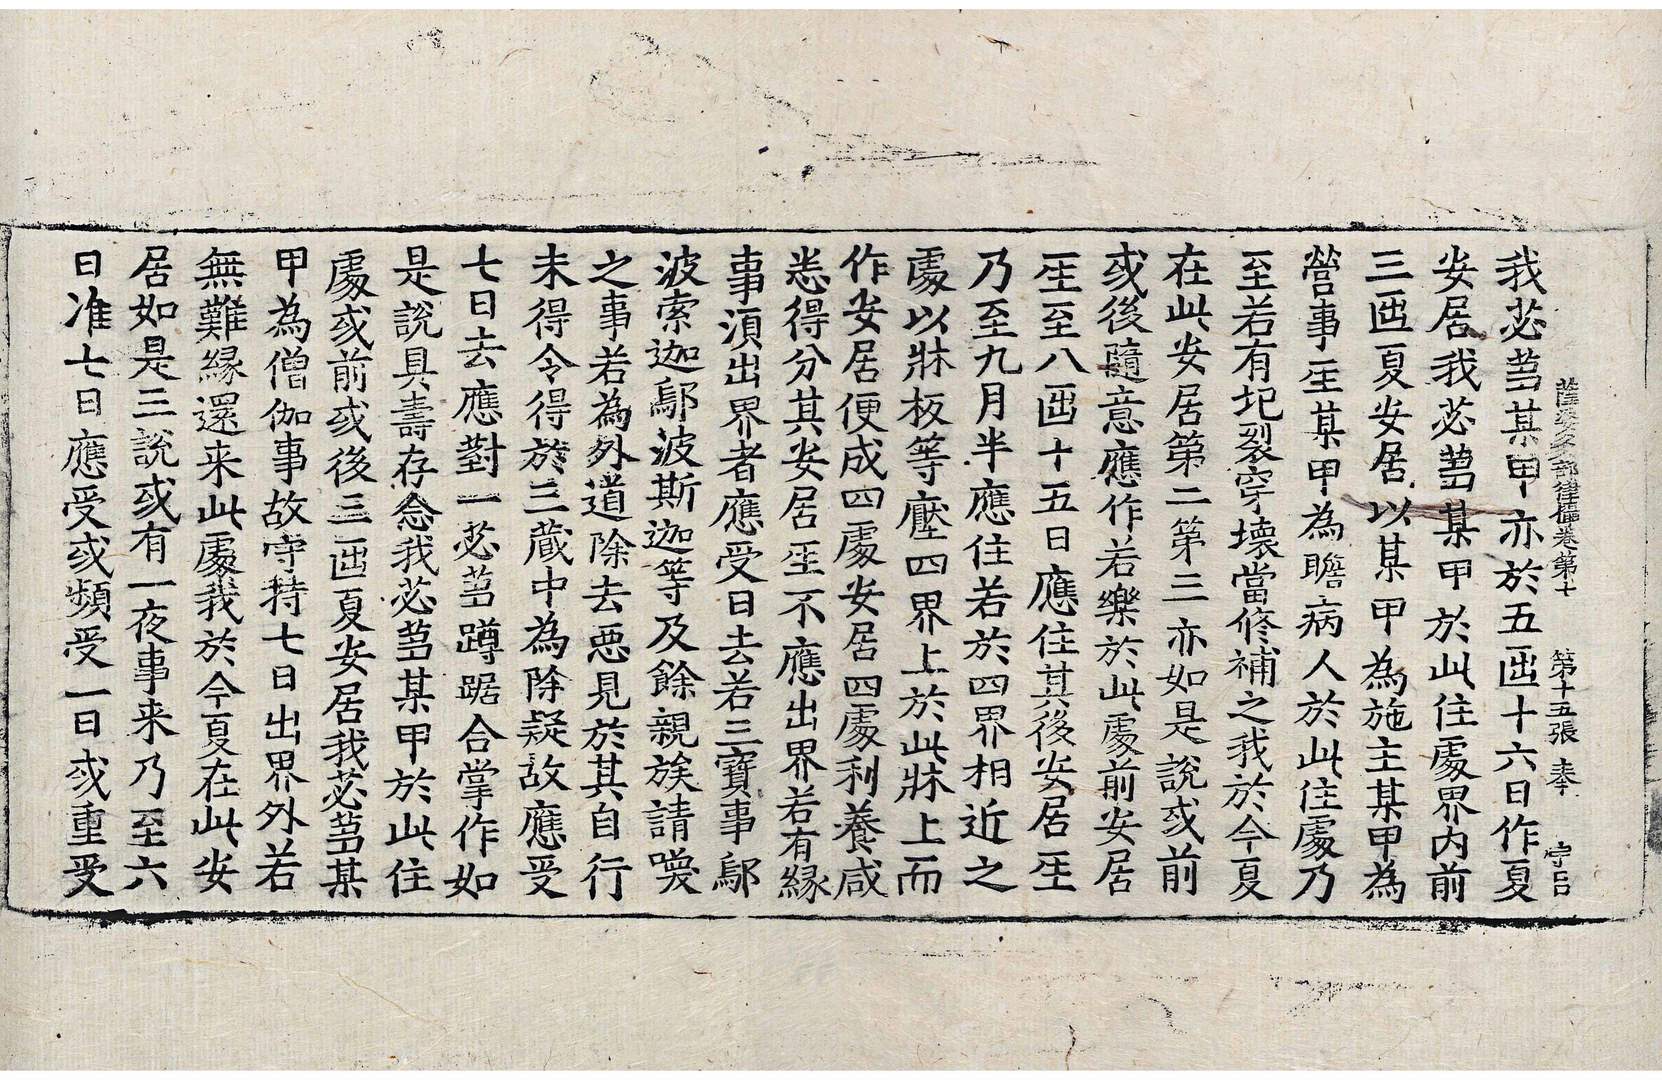 薩婆多部律攝卷第十 第十五張 奉
我苾芻某甲亦於五𠥱十六日作夏
安居我苾芻某甲於此住處界内前
三𠥱夏安居以某甲為施主某甲為
營事𤯔某甲為瞻病人於此住處乃
至若有圮裂穿壞當修補之我於今夏
在此安居第二第三亦如是說或前
或後隨意應作若樂於此處前安居
𤯔至八𠥱十五日應住其後安居𤯔
乃至九月半應住若於四界相近之
處以牀板等壓四界上於此牀上而
作安居便成四處安居四處利養咸
悉得分其安居𤯔不應出界若有縁
事湏出界者應受日去若三寶事鄔
波索迦鄔波斯迦等及餘親族請喚
之事若為外道除去惡見於其自行
未得令得於三蔵中為除疑故應受
七日去應對一苾芻蹲踞合掌作如
是說具壽存念我苾芻某甲於此住
處或前或後三𠥱夏安居我苾芻某
甲為僧伽事故守持七日出界外若
無難縁還来此處我於今夏在此安
居如是三說或有一夜事来乃至六
日准七日應受或頻受一日或重受